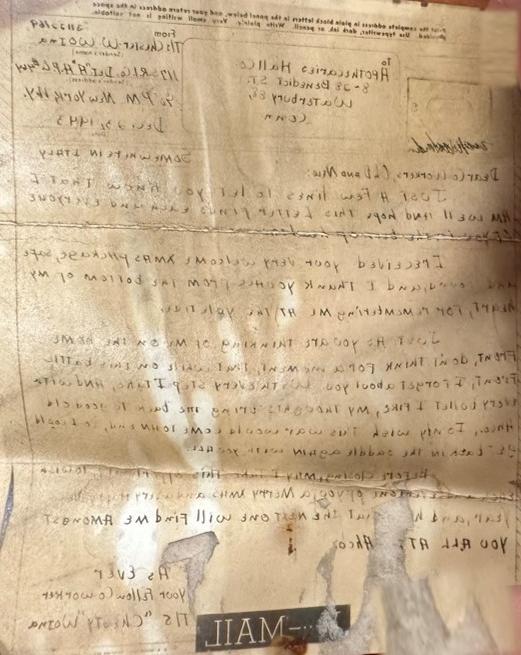 Print the complete address in plain block letters in the panel below, and your return address in the space
provided. Use typewriter, dark ink, or pencil. Write plainly. Very small writing is not suitable.
To
APOTHECARIES HALL CO
8-28 BENEDICT ST.
WATERBURY 88,
CONN
From
CHESTER W WOINA
(Sender's name)
(Sender's address)
% P.M. NEW YORK, N.Y.
DEC. 25, 1943
SOMEWHERE IN ITALY
DEAR CO WORKERS, (OLD AND NEW):
JUST A FEW LINES TO LET YOU KNOW THAT I
AM WELL AND HOPE THIS LETTER FINDS EACH AND EVERYONE
I RECEIVED YOUR VERY WELCOME XMAS PACKAGE, SAFE,
AND SOUND, AND I THANK YOU ALL FROM THE BOTTOM OF MY
HEART, FOR REMEMBERING ME AT THE YULETIDE.
JUST AS YOU ARE THINKING OF ME ON THE HOME
FRONT, DON'T THINK FOR A MOMENT, THAT WHILE ON THIS BATTLE
FRONT, I FORGET ABOUT YOU. WITH EVERY STEP I TAKE, AND WITH
EVERY BULLET I FIRE, MY THOUGHTS BRING ME BACK TO GOOD OLD
AHCO. IT'S MY WISH THIS WAR WOULD COME TO AN END, SO I COULD
GET BACK IN THE SADDLE AGAIN WITH YOU ALL.
BEFORE CLOSING, MAY I TAKE THIS TO WISH
EACH AND EVERYONE OF YOU, A MERRY XMAS AND A VERY HAPPY NEW
YEAR, AND THAT THE NEXT ONE WILL FIND ME AMONGST
YOU ALL AT AHCO.
AS EVER
YOUR FELLOW CO WORKER
T/5 "CHESTY" WOINA
MAIL